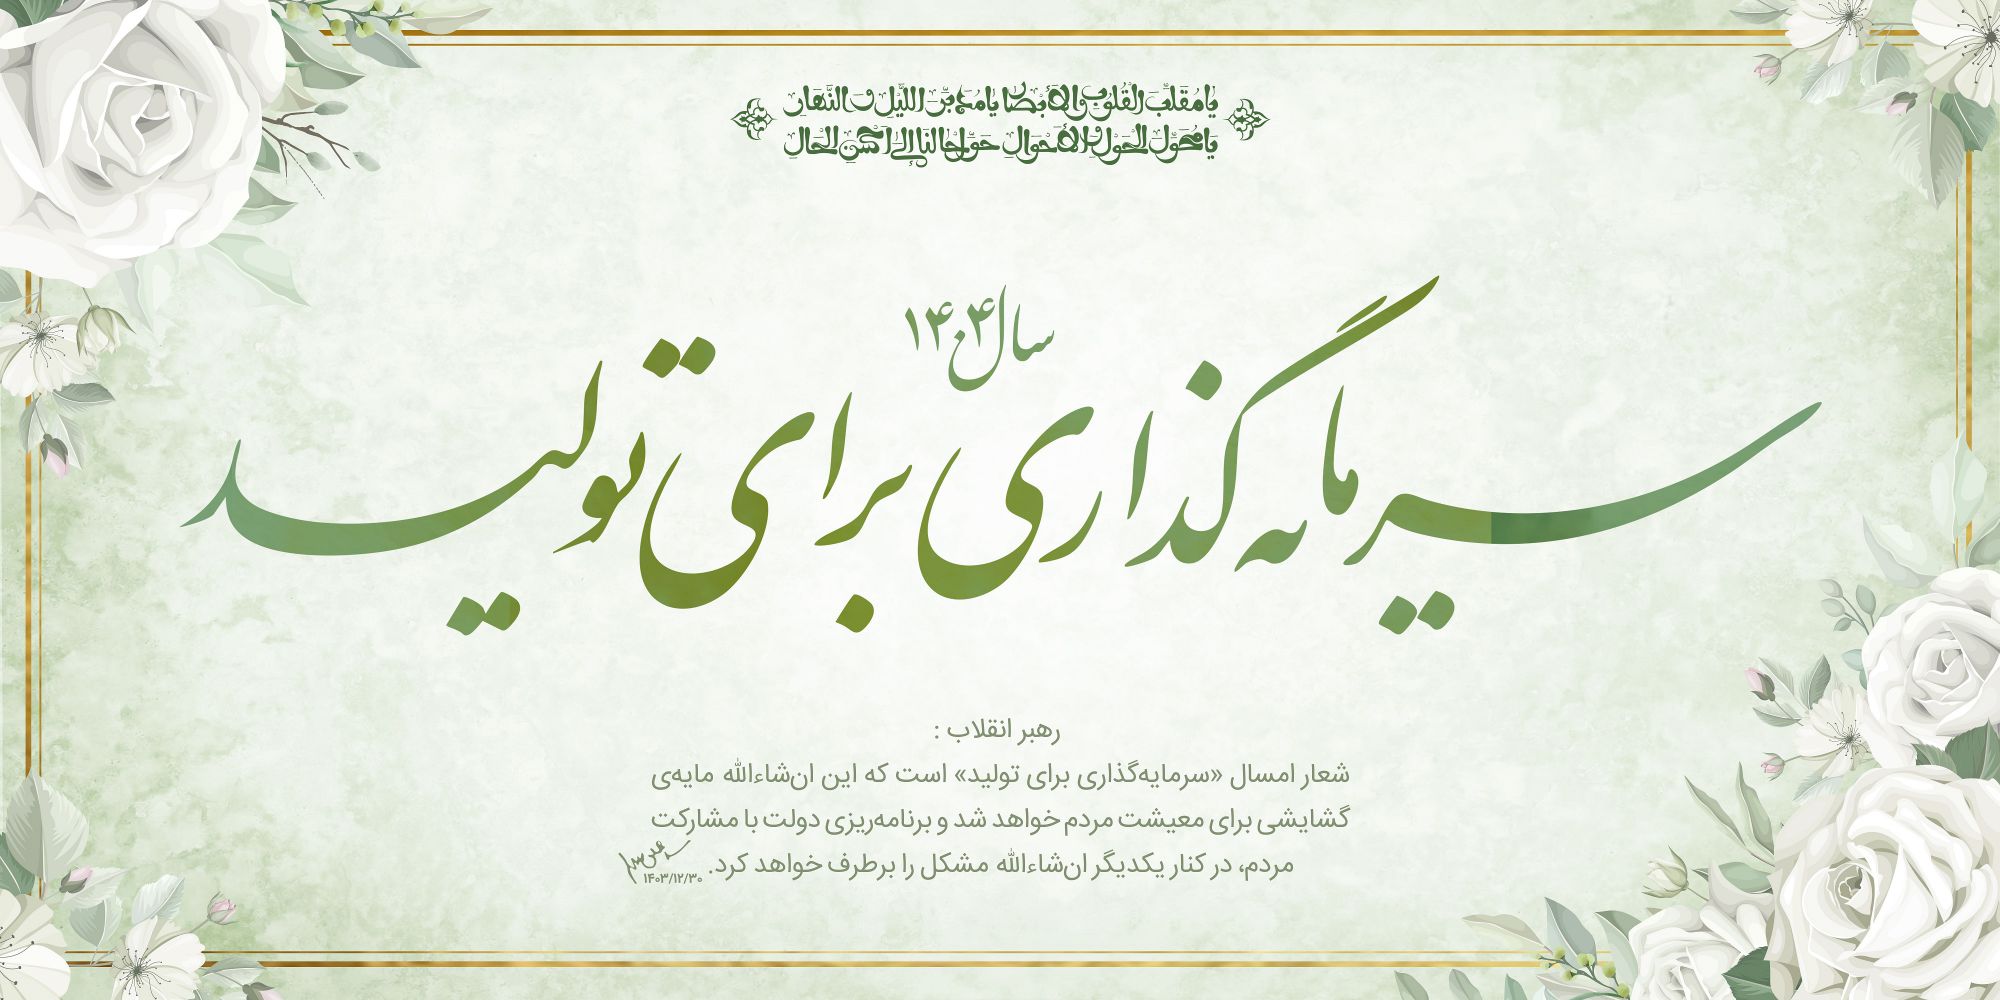 یا مُقَلِّبَ القُلوبِ وَالأَبصار یا مُدَبِّرَ اللَّیلِ وَالنَّهار
یا مُحَوِّلَ الحَولِ وَالأَحوال حَوِّل حالَنا اِلی اَحسَنِ الحال
سال ۱۴۰۴
سرمایه گذاری برای تولید
رهبر انقلاب :
شعار امسال «سرمایه‌گذاری برای تولید» است که این ان‌شاءالله مایه‌ی
گشایشی برای معیشت مردم خواهد شد و برنامه‌ریزی دولت با مشارکت
مردم، در کنار یکدیگر ان‌شاءالله مشکل را برطرف خواهد کرد.
۱۴۰۳/۱۲/۳۰